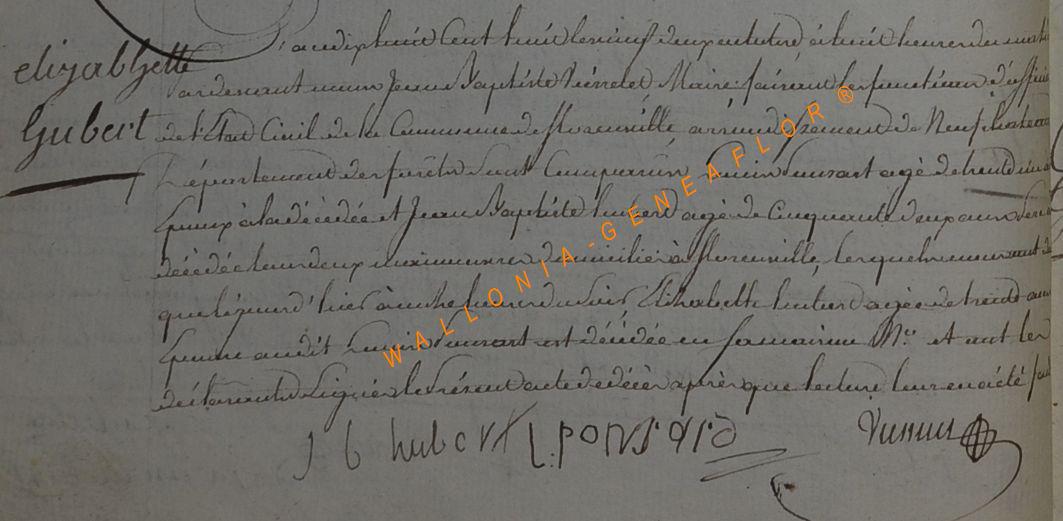 elizabhette
hubert
L'an dix huit cent huit le neuf du mois d'octobre, à huit heures du matin
Pardevant nous Jean Baptiste Maire faisant les fonctions d'officier
de l'Etat Civil de la Commune de florenville arrondissement de Neufchateau
Département des forêts sont Comparus ponsart agé de trente
Epoux à la décédée et Jean Baptiste hubert agé de Cinquante deux ans
décédée tous deux domiciliés à florenville, lesquels nous ont
que le jour d'hier à onze heures du soir Elizabette hubert agée de trente ans
Epouse audit ponsart est décédée en sa maison et ont les
déclarants Signés le présent acte de décès après que lecture leur en a été fait
J b hubert L ponsard
WALLONIA-GENEAFLOR ®